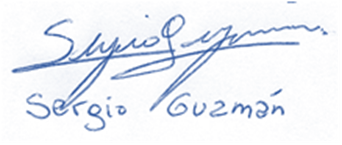 Sergio Guzmán
Sergio Guzmán